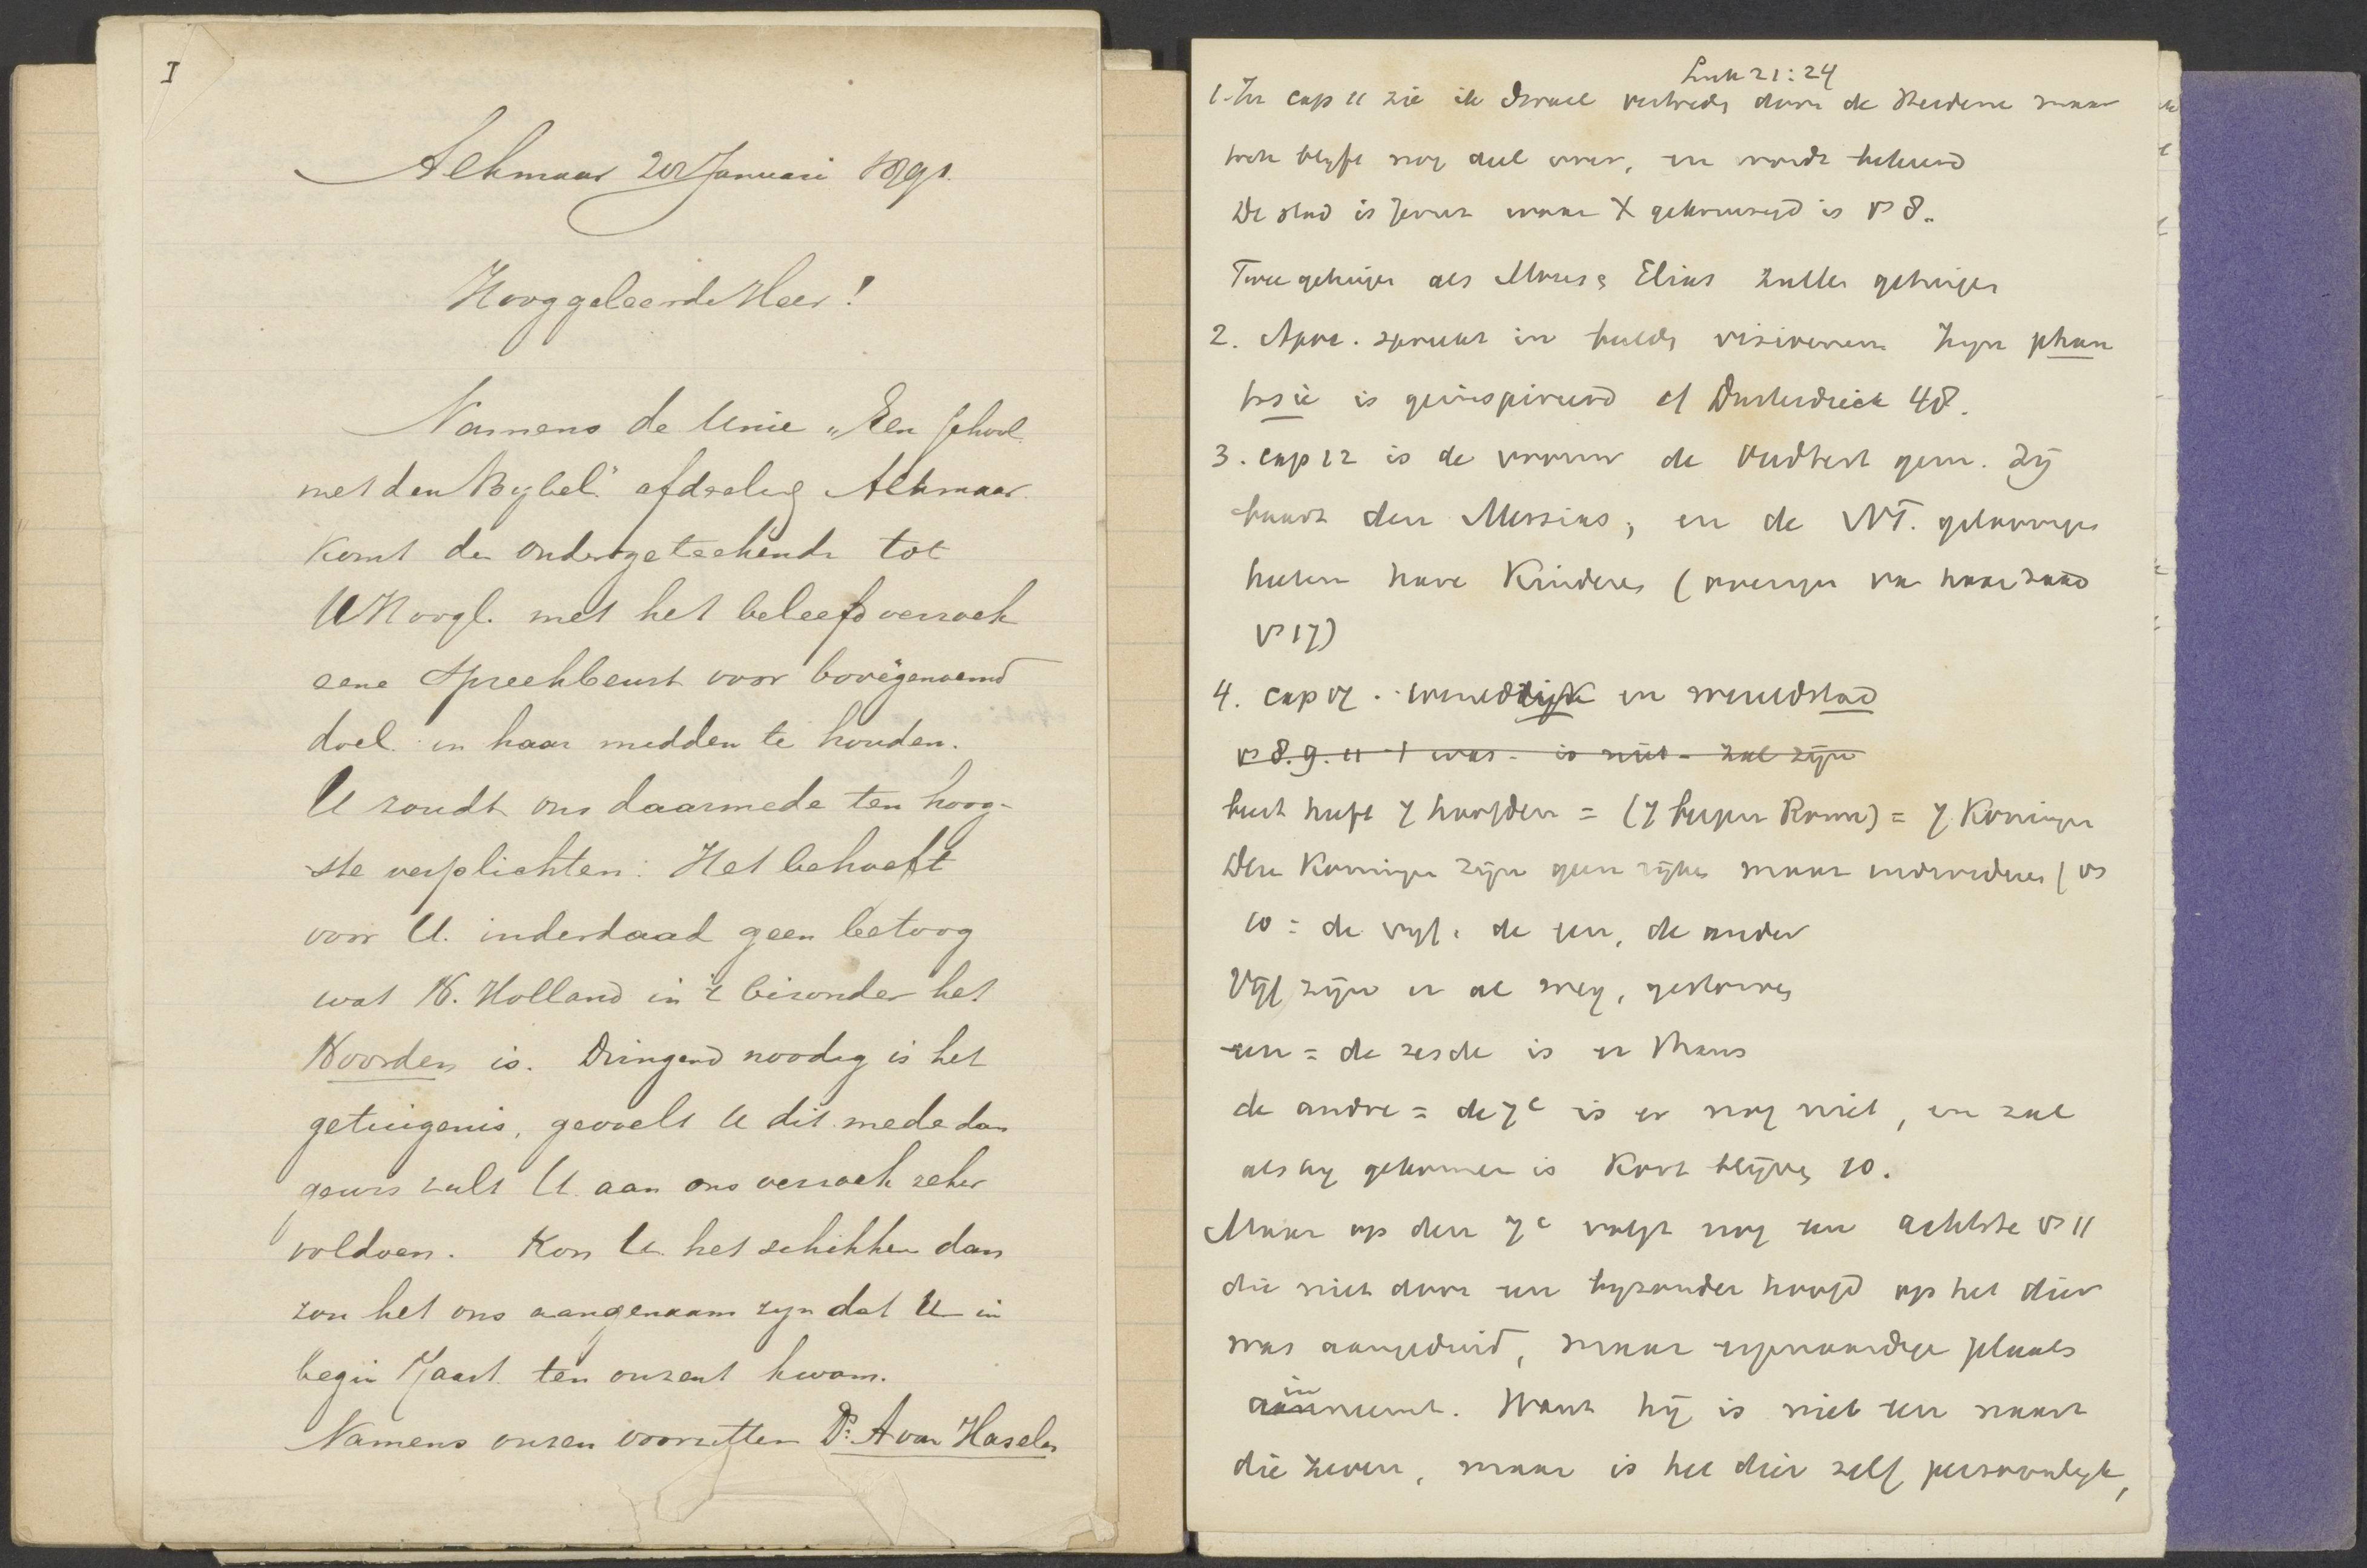 I
Alkmaar 20 Januari 1891.
Hooggeleerde Heer!
Namens de Unie „Een school
met den Bybel" afdeeling Alkmaar
komt de ondergeteekende tot
UHoogl. met het beleefd verzoek
eene spreekbeurt voor bovengenoemd
doel in haar midden te houden.
U zoudt ons daarmede ten hoog-
ste verplichten. Het behoeft
voor U. inderdaad geen betoog
wat N. Holland in 't bizonder het
Noorden is. Dringend noodig is het
getuigenis, gevoelt U dit mede dan
gewis zult U aan ons verzoek zeker
voldoen. Kon U het schikken dan
zou het ons aangenaam zyn dat U in
begin Maart ten onzent kwam.
Namens onzen voorzitter Ds. A van Haselen
Luk 21:24
1. In cap 11 zie ik Israel vertreden door de Heidenen maar
toch blyft nog deel over, en wordt bekeerd
De stad is Jeruz waar X gekruisigd is vs 8.
Twee getuigen als Mozes & Elias zullen getuigen
2. Apoc. spreekt in beelden visioenen Zyn phan
tasie is geinspireerd cf Dusterdieck 48.
3. cap 12 is de vrouw de Oudtest gem. Zij
baart den Messias, en de NT. geloovigen
heeten hare Kinderen (overigen van haar zaad
vs 17)
4. cap 17. wereldrijk en wereldstad
vs 8. 9. 11 + was - is niet - zal zijn
beest heeft 7 hoofden = (7 bergen Rome) = 7 Koningen
Deze Koningen zijn geen rijken maar individuen (vs
10 = de vyf, de een, de ander
Vijf zijn er al weg, gestorven
een = de zesde is er thans
de andre = de 7e is er nog niet, en zal
als hy gekomen is Kort blijven 10.
Maar op den 7e volgt nog een achtste vs 11
die niet door een byzonder hoofd op het dier
was aangeduid, maar eigenaardige plaats
in
aanneemt. Want hij is niet een naast
die zeven, maar is het dier zelf persoonlyk,